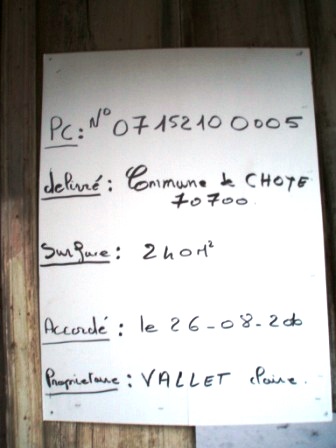 PC: N° 07152100005
delivré: Commune de CHOYE
70700
Surface: 240 M²
Accordé: le 26-08-
Proprietaire: VALLET Claire.